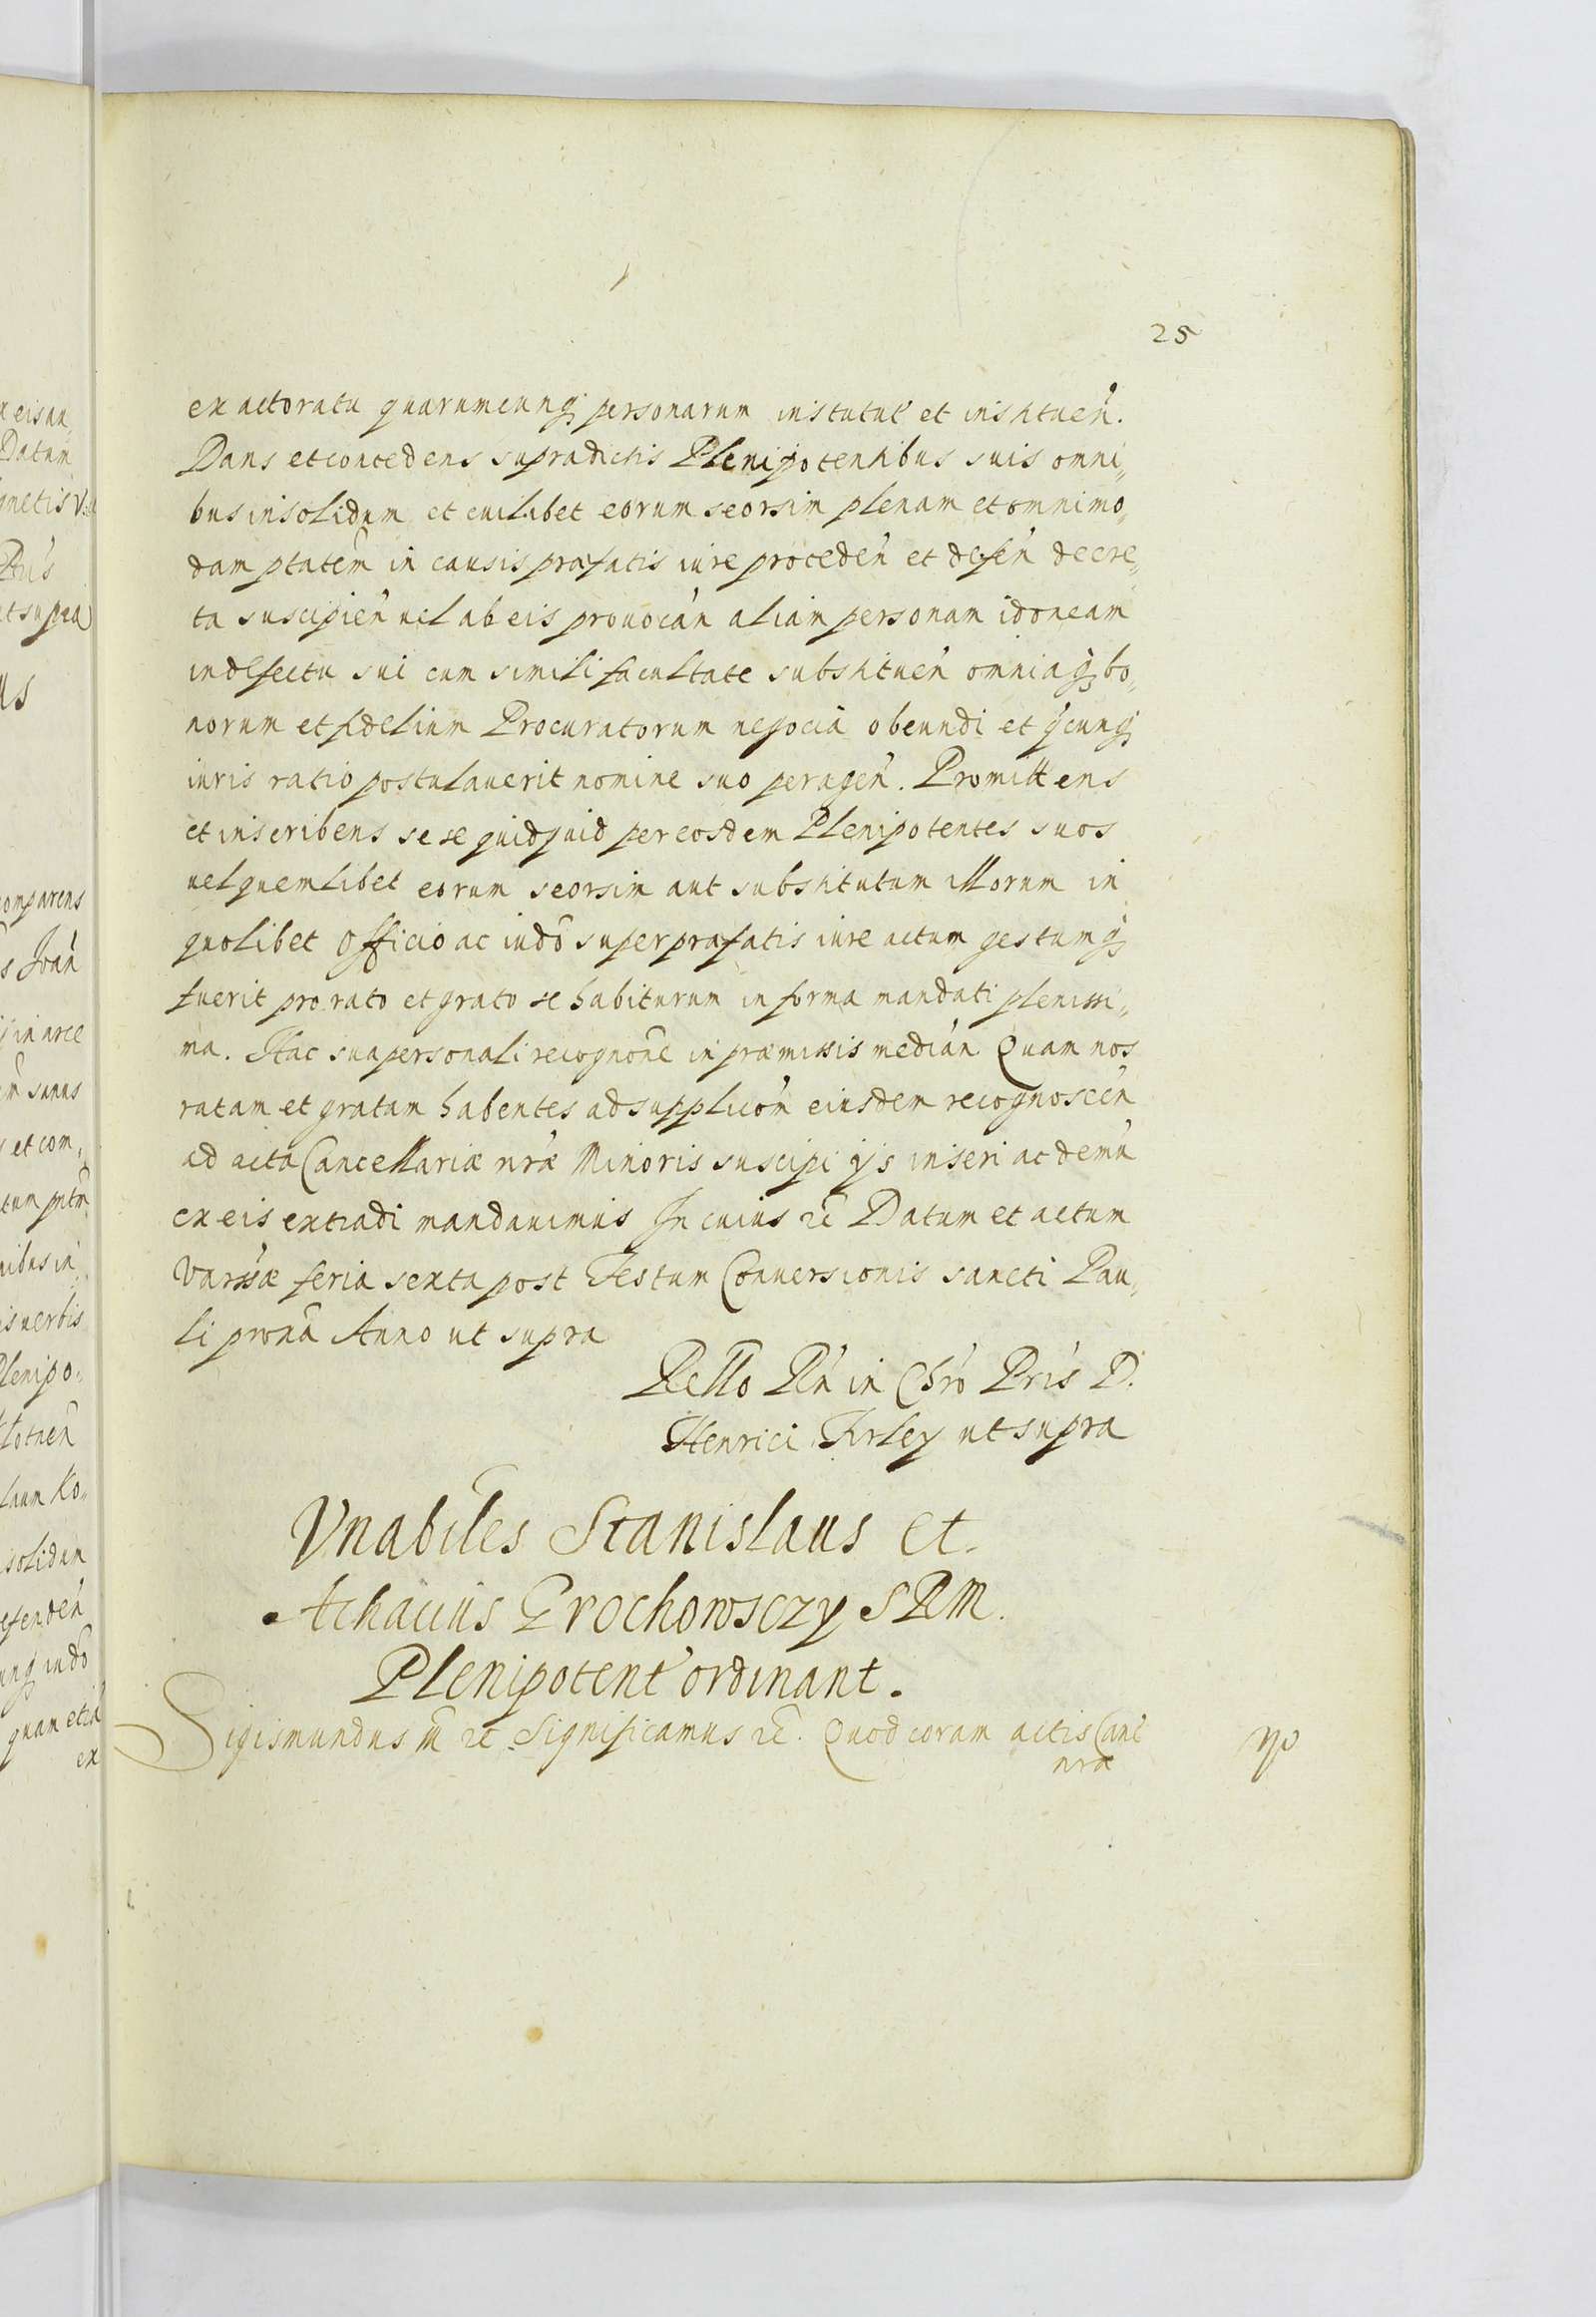 25
ex actoratu quarumcunq̃ personarum institut̃ et instituen̄.
Dans et concedens supradictis Plenipotentibus suis omni„
bus insolidum et cuilibet eorum seorsim plenam et omnimo„
dam ptatem̃ in causis præfatis iure proceden̄ et defen̄ decre„
ta suscipien̄ uel ab eis prouocan̄ aliam personam idoneam
in defectu sui cum simili facultate substituen̄ omniaq̃ bo„
norum et fidelium Procuratorum negocia obeundi et q̃cunq̃
iuris ratio postulauerit nomine suo peragen̄. Promittens
et inscribens sese quidquid per eosdem Plenipotentes suos
uel quemlibet eorum seorsim aut substitutum illorum in
quolibet Officio ac iudõ super præfatis iure actum gestumq̃
fuerit pro rato et grato se habiturum in forma mandati plenissi„
ma. Hac sua personali recognoñe in præmissis median̄ Quam nos
ratam et gratam habentes ad supplicõn eiusdem recognoscen̄
ad acta Cancellariæ nræ Minoris suscipi ijs inseri ac demũ
ex eis extradi mandauimus In cuius rc̃ Datum et actum
Varssæ feria sexta post Festum Conuersionis sancti Pau„
li proxã Anno ut supra
Rello Rñ in Chrõ Pris D.
Henrici Firley ut supra
Vnabiles Stanislaus et
Achacius Grochowsczy S R M.
Plenipotent̃ ordinant.
Sigismundus III rc Significamus rc̃. Quod coram actis Canc̃
nræ